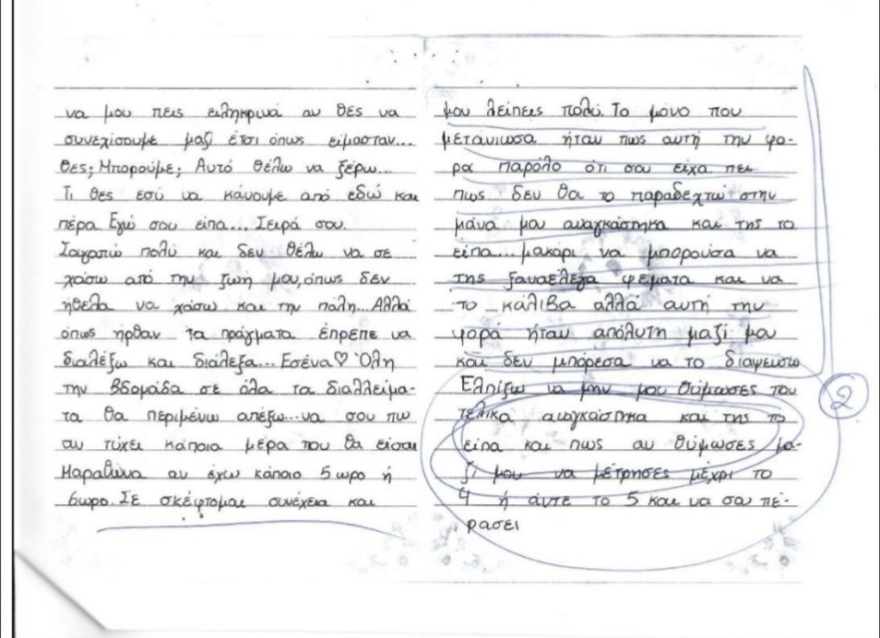 να μου πεις ειληκρινά αν θές να
συνεχίσουμε μαζί έτσι όπως είμασταν...
Θες; Μπορούμε; Αυτό θέλω να ξέρω...
Τι θες εσύ να κάνουμε από εδώ και
πέρα Εγώ σου είπα... Σειρά σου.
Σαγαπώ πολύ και δεν θέλω να σε
χάσω από την ζωή μου, όπως δεν
ήθελα να χάσω και την πάλη... Αλλά
όπως ήρθαν τα πράγματα έπρεπε να
διαλέξω και διάλεξα... Εσένα♡ Όλη
την βδομάδα σε όλα τα διαλλείμα-
τα θα περιμένω απέξω...να σου πω
αν τύχει κάποια μέρα που θα είσαι
Μαραθώνα αν έχω κάποιο 5ωρο ή
6ωρο. Σε σκέφτομαι συνέχεια και
μου λείπεις πολύ. Το μόνο που
μετάνιωσα ήταν πως αυτή την φο-
ρά παρόλο ότι σου είχα πει
πως δεν θα το παραδεχτώ στην
μάνα μου αναγκάστηκα και της το
είπα... μακάρι να μπορούσα να
της ξαναέλεγα ψέματα και να
το κάλιβα αλλά αυτή την
φορά ήταν απόλυτη μαζί μου
και δεν μπόρεσα να το διαψεύσω
Ελπίζω να μην μου θύμωσες που
τελικά αναγκάστηκα και της το
είπα και πως αν θύμωσες μα-
ζί μου να μέτρησες μέχρι το
4 ή άντε το 5 και να σου πέ-
ρασει
2